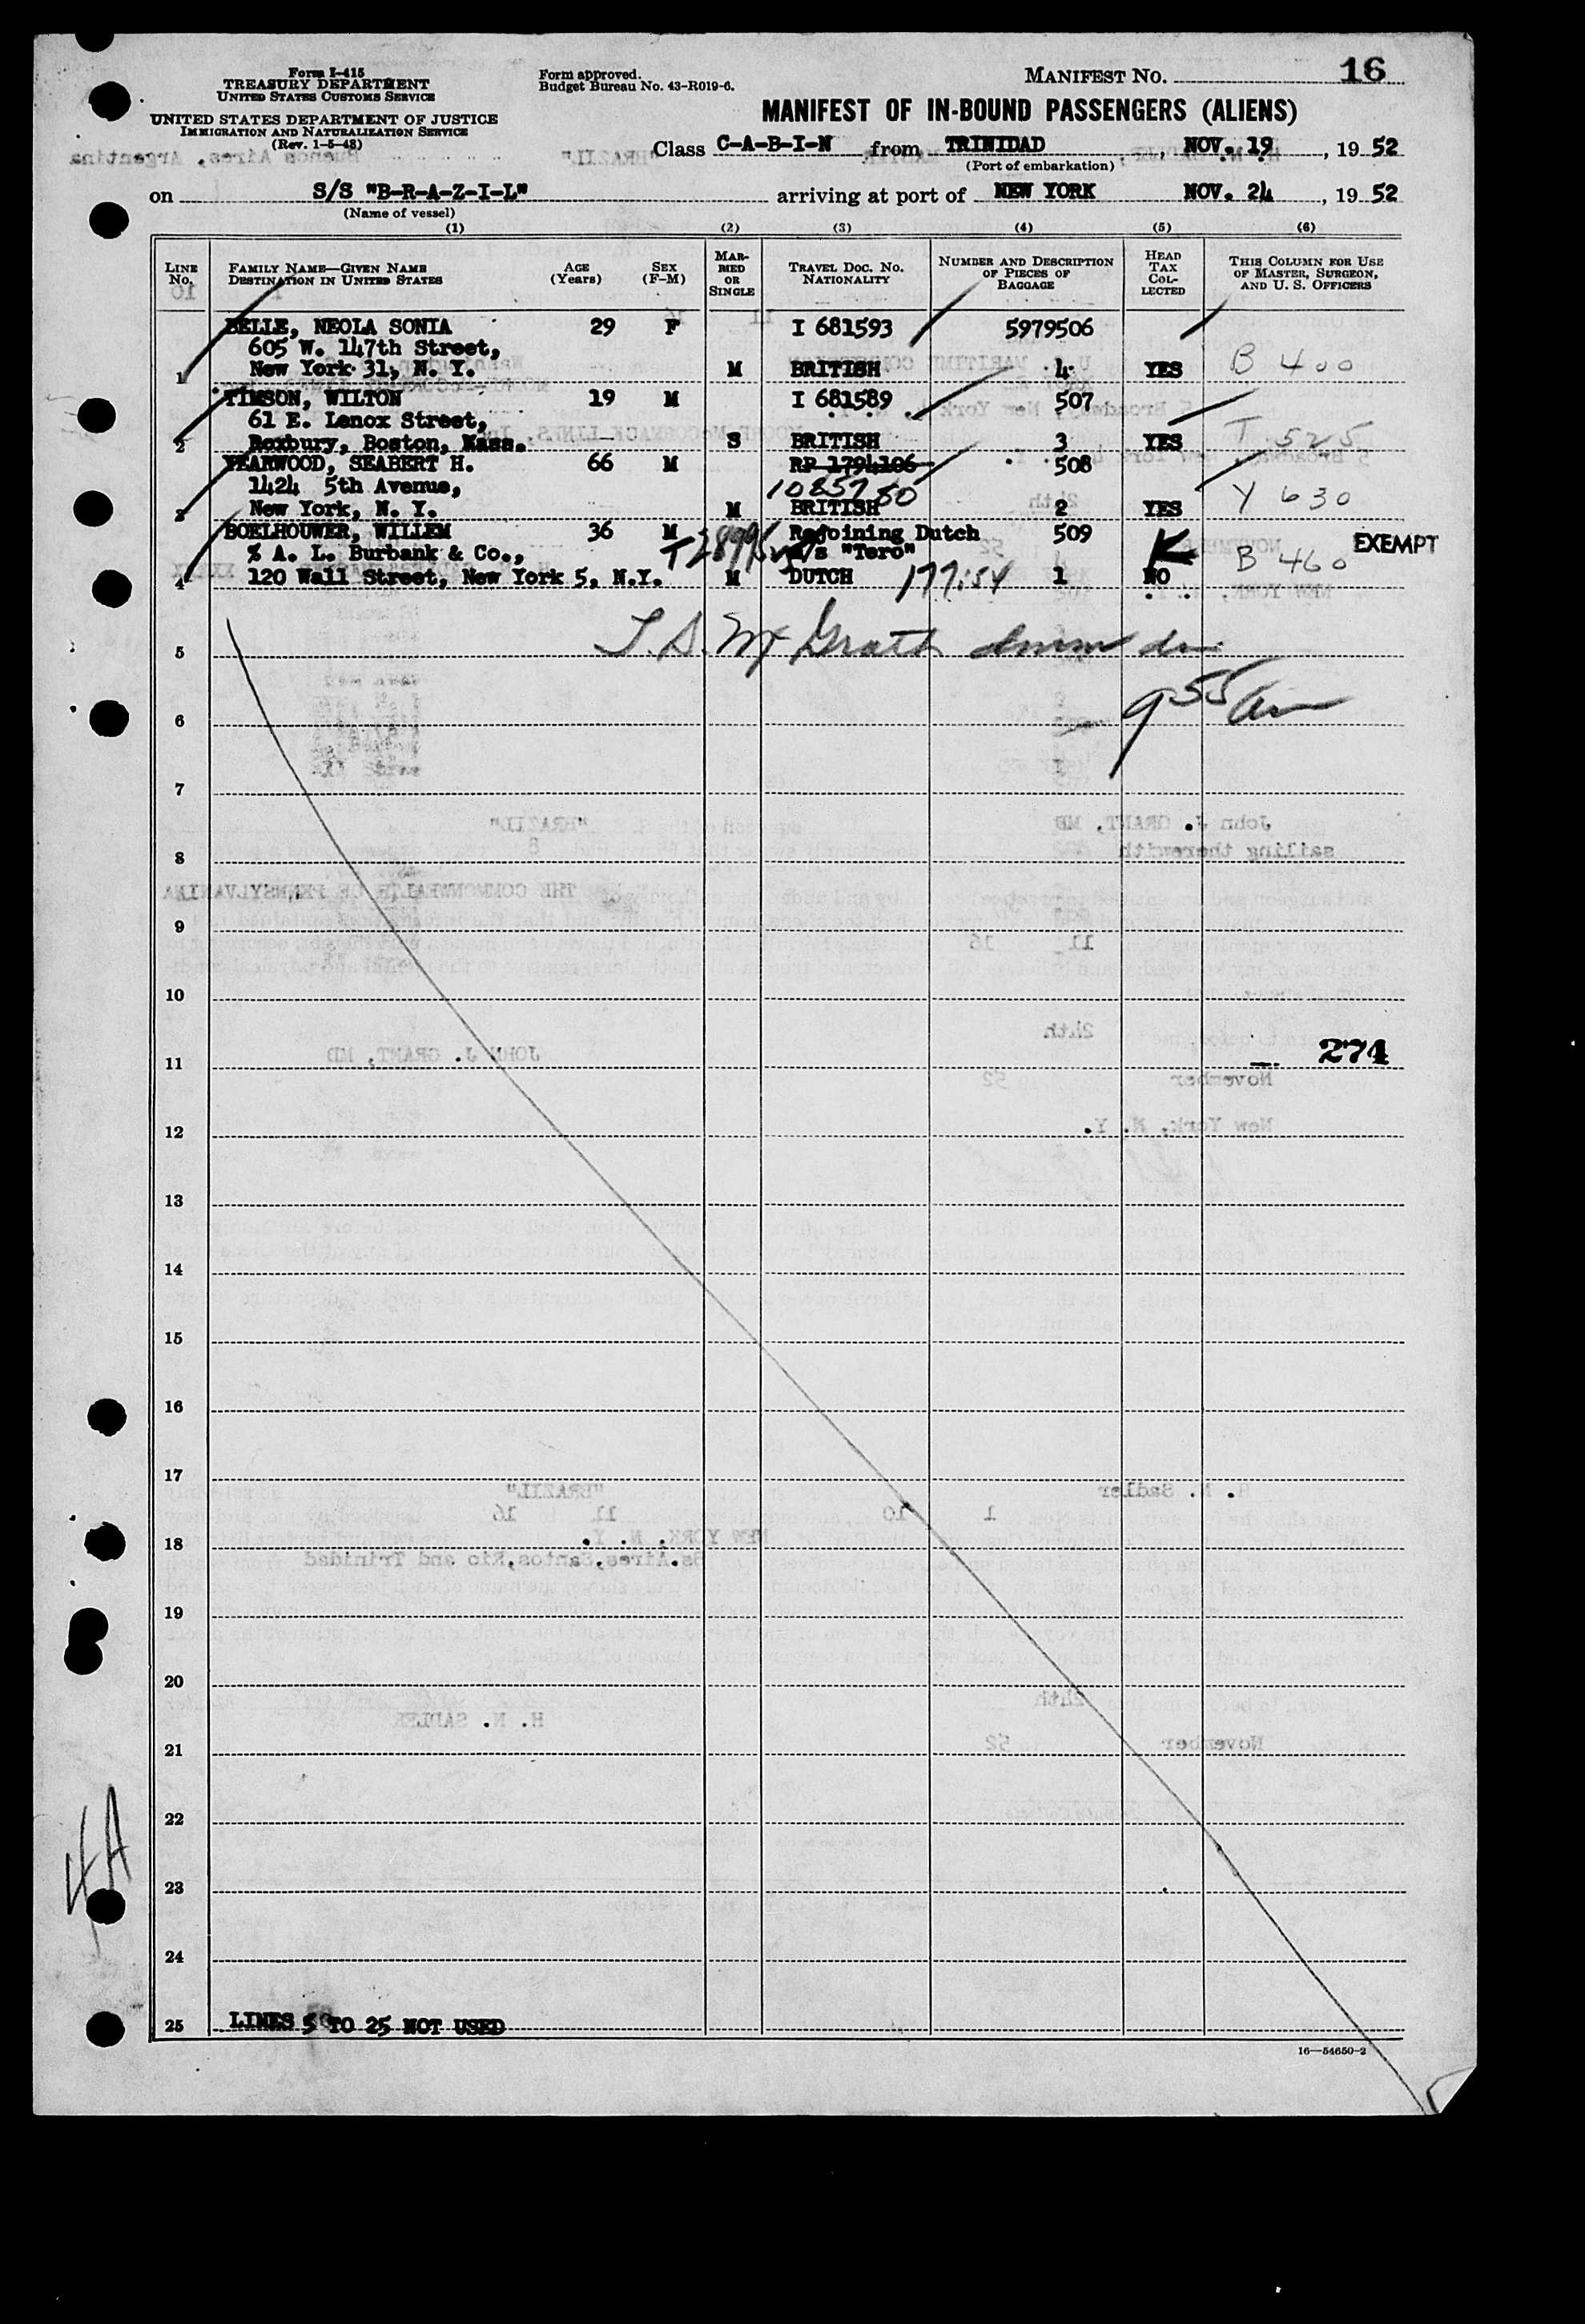 16
Form I-415
TREASURY DEPARTMENT
UNITED STATES CUSTOMS SERVICE
UNITED STATES DEPARTMENT OF JUSTICE
IMMIGRATION AND NATURALIZATION SERVICE
(Rev. 1-5-48)
Form approved.
Budget Bureau No. 43-R019-6.
MANIFEST NO.
MANIFEST OF IN-BOUND PASSENGERS (ALIENS)
Class C-A-B-I-N from TRINIDAD, NOV. 19, 1952
(Port of embarkation)
on S/S "B-R-A-Z-I-L" arriving at port of NEW YORK NOV. 24, 1952
(Name of vessel)
(1) (2) (3) (4) (5) (6)
LINE NO. FAMILY NAME—GIVEN NAME DESTINATION IN UNITED STATES AGE (Years) SEX (F-M) MARRIED OR SINGLE TRAVEL DOC. NO. NATIONALITY NUMBER AND DESCRIPTION OF PIECES OF BAGGAGE HEAD TAX COLLECTED THIS COLUMN FOR USE OF MASTER, SURGEON, AND U. S. OFFICERS
BELLE, NEOLA SONIA 29 F I 681593 5979506
605 W. 147th Street,
1 New York 31, N. Y. M BRITISH 4 YES B 400
TIMSON, WILTON 19 M I 681589 507
61 E. Lenox Street,
2 Roxbury, Boston, Mass. S BRITISH 3 YES T 525
YEARWOOD, SEABERT H. 66 M RP 1794106 508
1424 5th Avenue,
3 New York, N. Y. M BRITISH 2 YES Y 630
BOELHOUWER, WILLEM 36 M Rejoining Dutch 509
% A. L. Burbank & Co., m/s "Tero" B 460 EXEMPT
4 120 Wall Street, New York 5, N.Y. M DUTCH 1 NO
5
6 9 55 am
7
8
9
10
11 274
12
13
14
15
16
17
18
19
20
21
22
23
24
25 LINES 5 TO 25 NOT USED
16—54650-2
4A